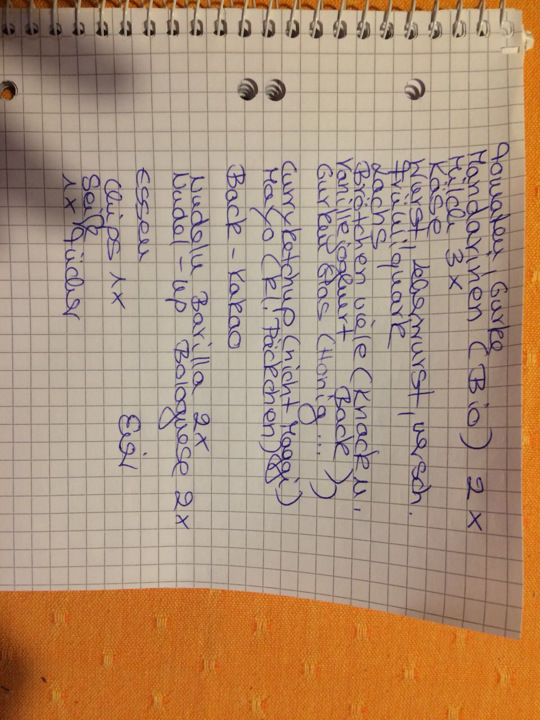 Tomaten, Gurke
Mandarinen (Bio) 2x
Milch 3x
Käse
Wurst, Leberwurst, versch.
Früh.quark
Lachs
Brötchen viele (Knack u.
Back)
Vanillejoghurt
Gurken Glas (Honig ...)
Curryketchup (nicht Maggi)
Mayo (kl. Päckchen)
Back-Kakao
Nudeln Barilla 2x
Nudel-up Bolognese 2x
Essen
Eier
Chips 1x
Saft
1x